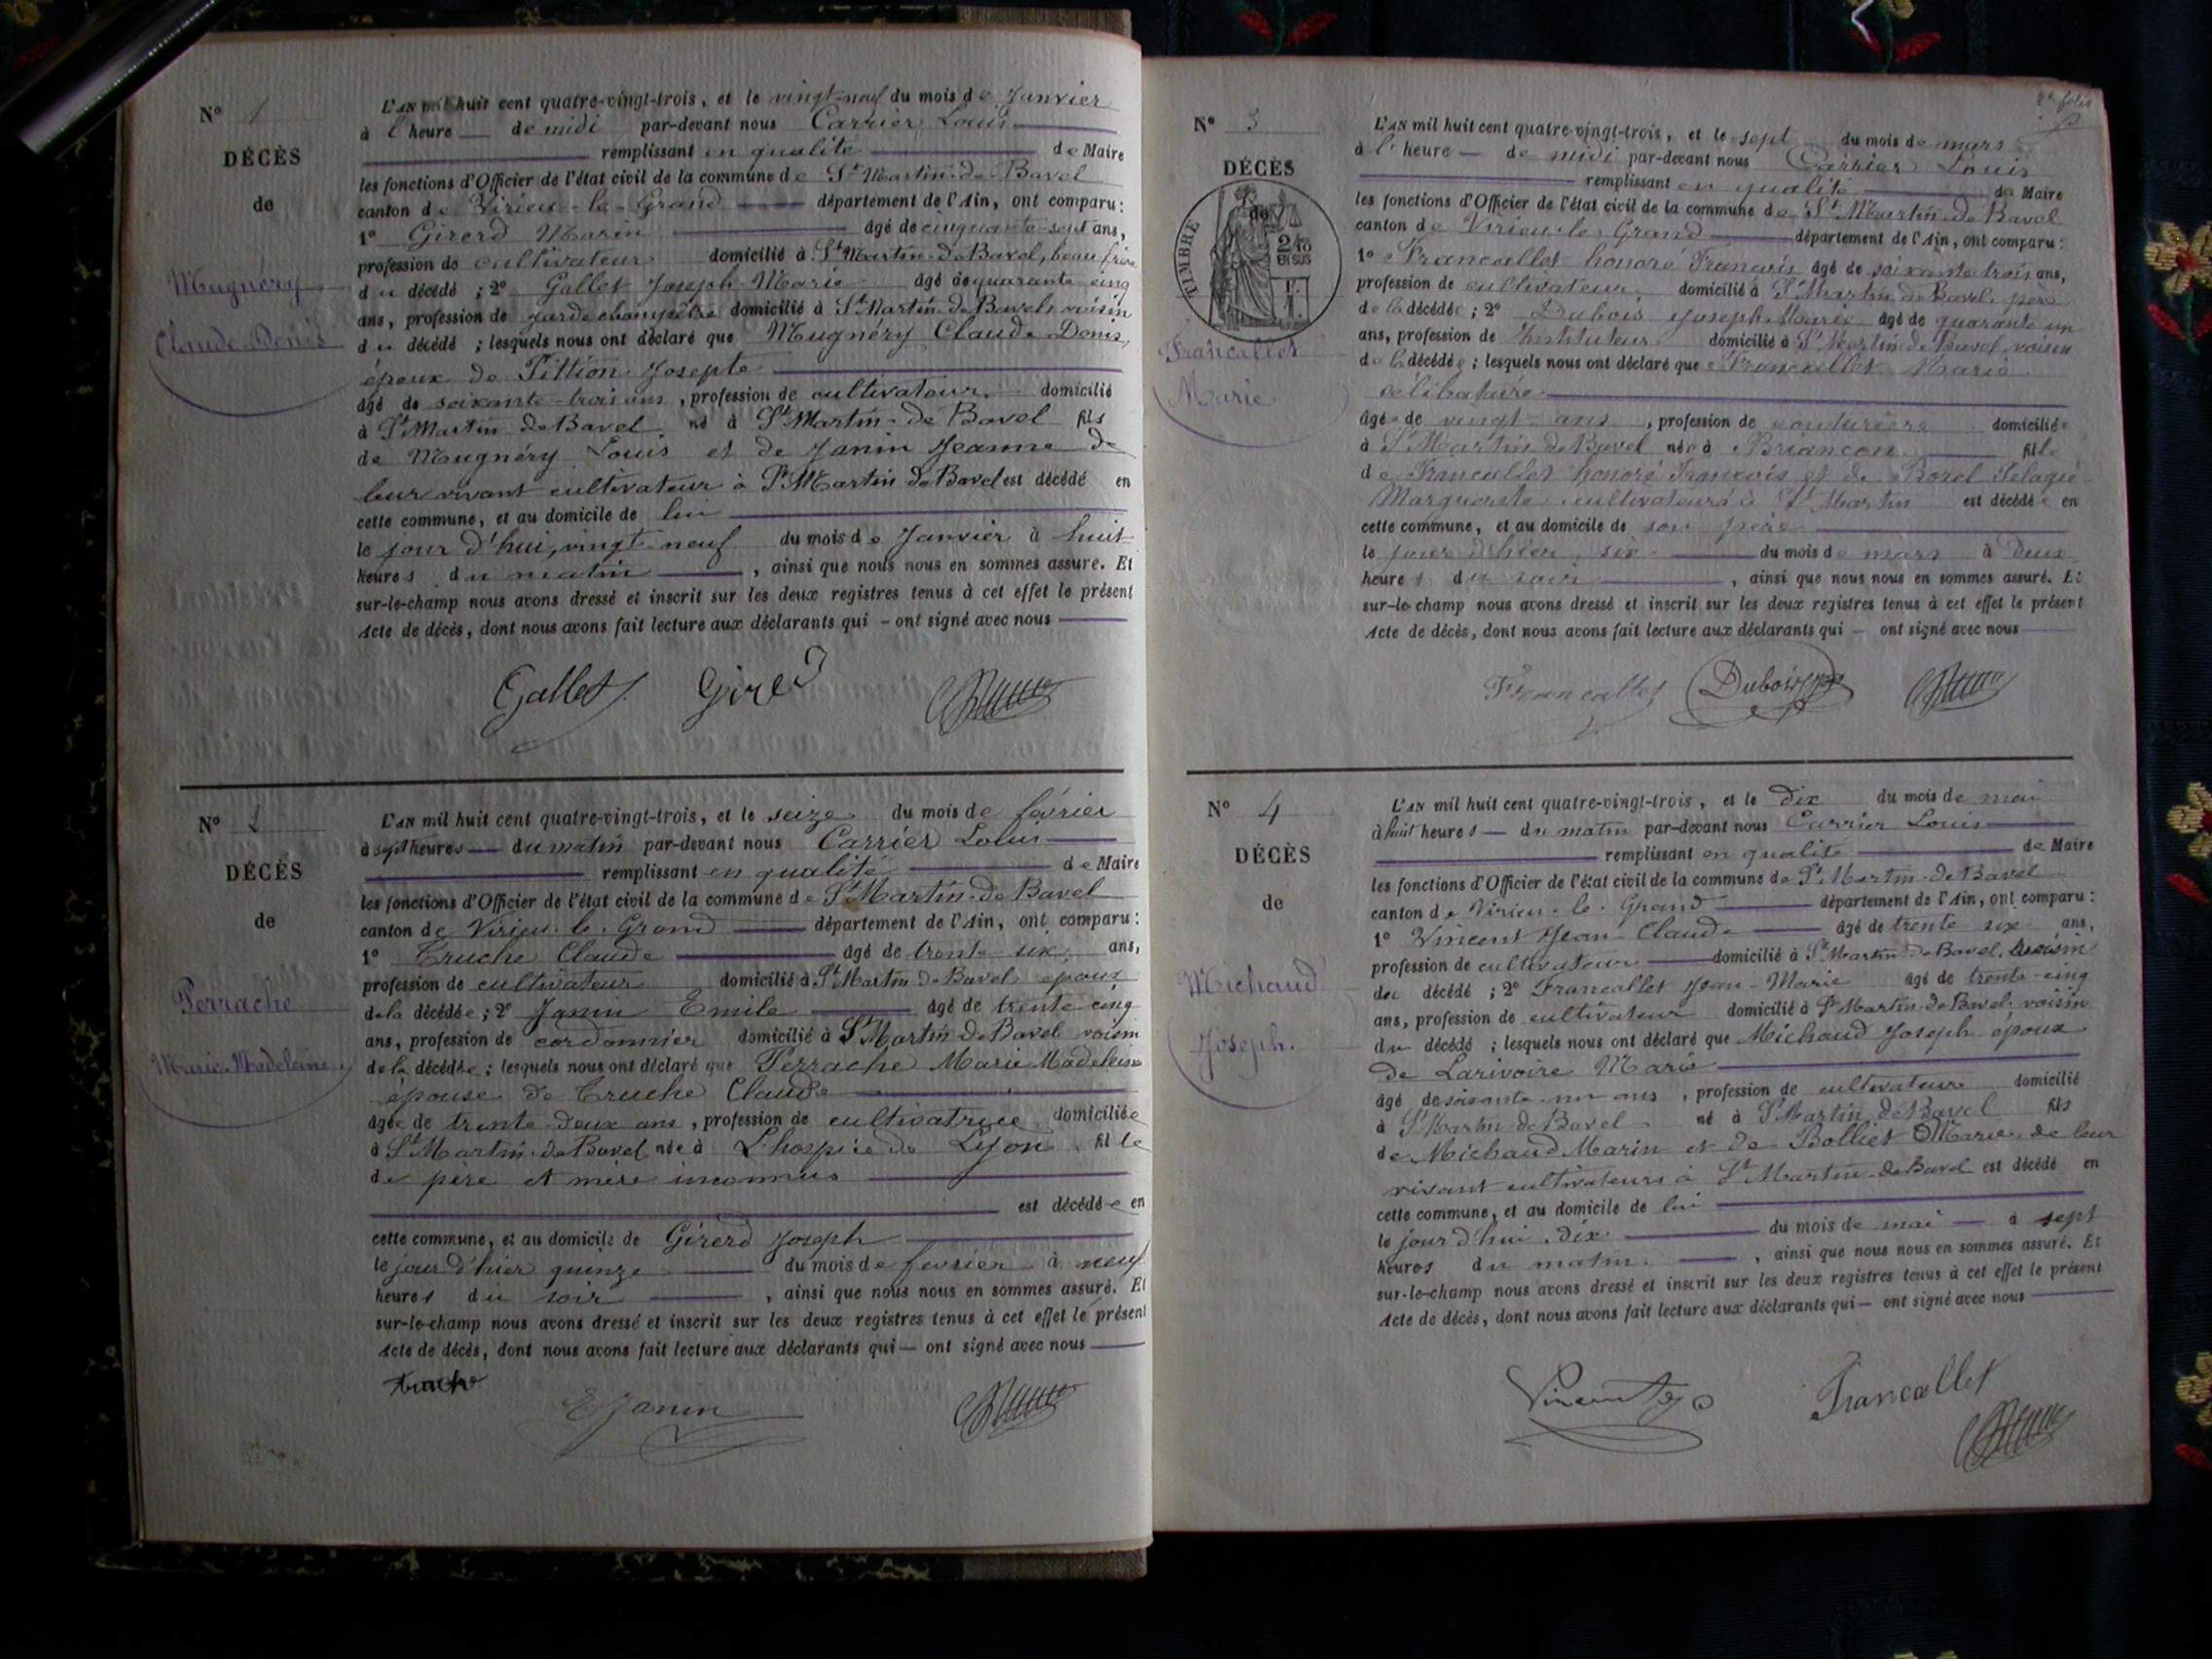 N° 1
DÉCÈS
de
Mugnéry
Claude Denis
L'AN mil huit cent quatre-vingt-trois, et le vingt-neuf du mois de Janvier
à l'heure — de midi par-devant nous Carrier Louis
remplissant en qualité de Maire
les fonctions d'Officier de l'état civil de la commune de St Martin-de-Bavel
canton de Virieu-le-Grand département de l'Ain, ont comparu :
1° Girerd Marin âgé de cinquante-sept ans,
profession de cultivateur domicilié à St Martin-de-Bavel, beau frère
du décédé ; 2° Gallet Joseph-Marie âgé de quarante cinq
ans, profession de garde champêtre domicilié à St Martin-de-Bavel, voisin
du décédé ; lesquels nous ont déclaré que Mugnéry Claude Denis,
époux de Pittion Josepte
âgé de soixante-trois ans, profession de cultivateur, domicilié
à St Martin de Bavel né à St Martin-de Bavel fils
de Mugnéry Louis et de Janin Jeanne de
leur vivant cultivateur à St Martin de Bavel est décédé en
cette commune, et au domicile de lui
le jour d'hui, vingt-neuf du mois de Janvier à huit
heures du matin, ainsi que nous nous en sommes assuré. Et
sur-le-champ nous avons dressé et inscrit sur les deux registres tenus à cet effet le présent
Acte de décès, dont nous avons fait lecture aux déclarants qui — ont signé avec nous
Gallet Girerd
N° 2
DÉCÈS
de
Perrache
Marie-Madeleine
L'AN mil huit cent quatre-vingt-trois, et le seize du mois de février
à sept heures — du matin par-devant nous Carrier Louis
remplissant en qualité de Maire
les fonctions d'Officier de l'état civil de la commune de St Martin-de-Bavel
canton de Virieu-le-Grand département de l'Ain, ont comparu :
1° Truche Claude âgé de trente six ans,
profession de cultivateur domicilié à St Martin-de-Bavel époux
de la décédée ; 2° Janin Emile âgé de trente-cinq
ans, profession de cordonnier domicilié à St Martin-de-Bavel voisin
de la décédée ; lesquels nous ont déclaré que Perrache Marie Madeleine
épouse de Truche Claude
âgée de trente-deux ans, profession de cultivatrice domiciliée
à St Martin-de-Bavel née à L'hospice de Lyon fille
de père et mère inconnus
est décédée en
cette commune, et au domicile de Girerd Joseph
le jour d'hier quinze du mois de fevrier à neuf
heures du soir, ainsi que nous nous en sommes assuré. Et
sur-le-champ nous avons dressé et inscrit sur les deux registres tenus à cet effet le présent
Acte de décès, dont nous avons fait lecture aux déclarants qui — ont signé avec nous
truche E Janin
2e folio
N° 3
DÉCÈS
de
TIMBRE
2/10 EN SUS
Francallet
Marie
L'AN mil huit cent quatre-vingt-trois, et le sept du mois de mars
à l'heure — de midi par-devant nous Carrier Louis
remplissant en qualité de Maire
les fonctions d'Officier de l'état civil de la commune de St Martin-de Bavel
canton de Virieu-le-Grand département de l'Ain, ont comparu :
1° Francallet honoré François âgé de soixante trois ans,
profession de cultivateur domicilié à St Martin de Bavel, père
de la décédée ; 2° Dubois Joseph Marie âgé de quarante un
ans, profession de Instituteur domicilié à St Martin de Bavel, voisin
de la décédée ; lesquels nous ont déclaré que Francallet Marie
célibataire
âgée de vingt ans, profession de couturière domiciliée
à St Martin de Bavel née à Briancon fille
de Francallet honoré François et de Borel Pelagie
Marguerite cultivateurs à St Martin est décédée en
cette commune, et au domicile de son père
le jour d'hier six du mois de mars à Deux
heures du soir, ainsi que nous nous en sommes assuré. Et
sur-le-champ nous avons dressé et inscrit sur les deux registres tenus à cet effet le présent
Acte de décès, dont nous avons fait lecture aux déclarants qui — ont signé avec nous
Francallet Dubois
N° 4
DÉCÈS
de
Michaud
Joseph.
L'AN mil huit cent quatre-vingt-trois, et le Dix du mois de mai
à huit heures — du matin par-devant nous Carrier Louis
remplissant en qualité de Maire
les fonctions d'Officier de l'état civil de la commune de St Martin-de Bavel
canton de Virieu-le-Grand département de l'Ain, ont comparu :
1° Vincent Jean-Claude âgé de trente six ans,
profession de cultivateur domicilié à St Martin-de Bavel, voisin
du décédé ; 2° Francallet Jean-Marie âgé de trente-cinq
ans, profession de cultivateur domicilié à St Martin-de-Bavel, voisin
du décédé ; lesquels nous ont déclaré que Michaud Joseph époux
de Larivoire Marie
âgé de soixante-un ans, profession de cultivateur domicilié
à St Martin de Bavel né à St Martin de Bavel fils
de Michaud Marin et de Bolliet Marie de leur
vivant cultivateurs à St Martin-de Bavel est décédé en
cette commune, et au domicile de lui
le jour d'hui dix du mois de mai à sept
heures du matin, ainsi que nous nous en sommes assuré. Et
sur-le-champ nous avons dressé et inscrit sur les deux registres tenus à cet effet le présent
Acte de décès, dont nous avons fait lecture aux déclarants qui — ont signé avec nous
Vincent Francallet